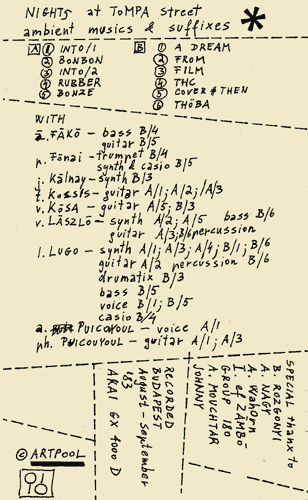 NIGHTS at TOMPA Street
ambient musics & suffixes *
A ① INTO/1
② BONBON
③ INTO/2
④ RUBBER
⑤ BONZE
B ① A DREAM
② FROM
③ FILM
④ THC
⑤ COVER # THEN
⑥ THÖBA
WITH
a. FÁKÓ — bass B/4
guitar B/5
r. Fónai — trumpet B/4
synth & casio B/5
j. Kálnay — synth B/3
t. Kossis — guitar A/1; A/2; A/3
v. KÓSA — guitar A/5; B/3
v. LÁSZLÓ — synth A/2; A/5 bass B/6
guitar A/3; B/6 percussion
l. LUGO — synth A/1; A/3; A/4; B/1; B/6
guitar A/2 percussion B/6
drumatix B/3
bass B/5
voice B/1; B/5
casio B/4
a. PUICOYOUL — voice A/1
ph. PUICOUYOUL — guitar A/1; A/3
© ARTPOOL
RECORDED
BUDAPEST
August - September
'83
AKAI GX 4000 D
SPECIAL thanx to
B. ROZGONYI
A. NAGY
A. Wahorn
I. ef ZÁMBÓ
GROUP 180
A. MOUCHTAR
JOHNNY